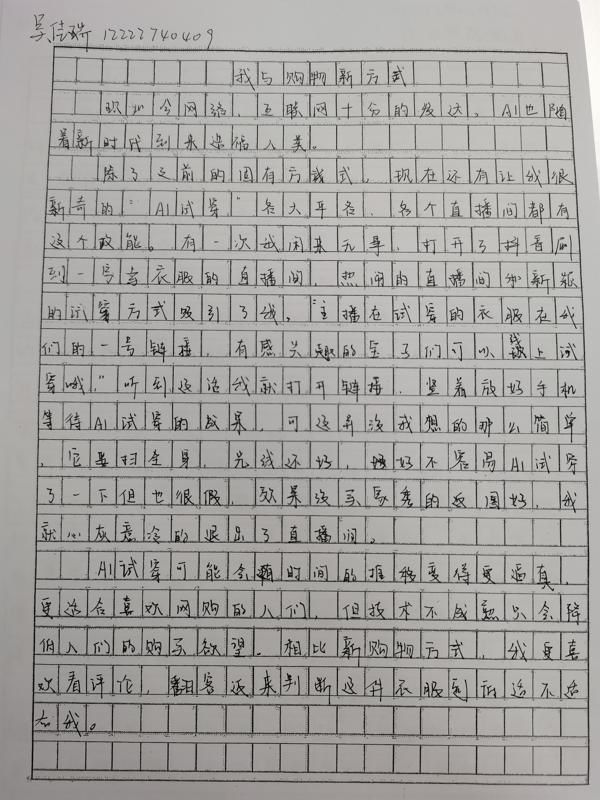 吴佳瑞 12222740409
我与购物新方式
现如今网络，互联网十分的发达，AI也随
着新时代到来造福人类。
除了之前的固有方式，现在还有让我很
新奇的“AI试穿”各大平台、各个直播间都有
这个功能。有一次我闲来无事，打开了抖音刷
到一号卖衣服的直播间，热闹的直播间和新颖
的试穿方式吸引了我，“主播在试穿的衣服在我
们的一号链接，有感兴趣的宝子们可以线上试
穿哦，”听到这话我就打开链接，坚着放好手机
等待AI试穿的成果，可这并没我想的那么简单
，它要扫全身，光线还好，好不容易AI试穿
了一下但也很假，效果没买家秀的返图好，我
就心灰意冷的退出了直播间。
AI试穿可能会随时间的推移变得更逼真，
更适合喜欢网购的人们，但技术不成熟只会降
低人们的购买欲望。相比新购物方式，我更喜
欢看评论，翻客返来判断这件衣服到底适不适
合我。